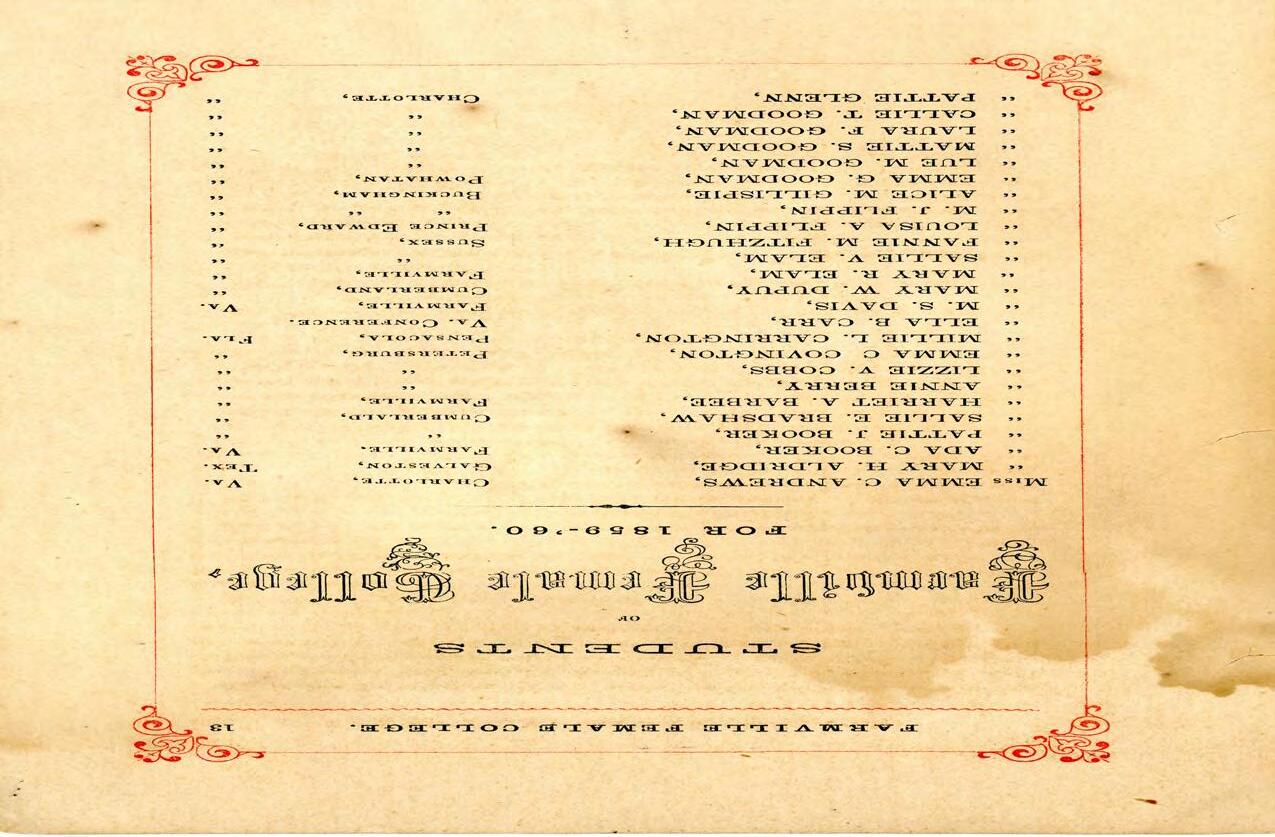 FARMVILLE FEMALE COLLEGE. 13
STUDENTS
OF
Farmville Female College,
FOR 1859-'60.
Miss EMMA C. ANDREWS, CHARLOTTE, VA.
" MARY H. ALDRIDGE, GALVESTON, TEX.
" ADA C. BOOKER, FARMVILLE. VA.
" PATTIE J. BOOKER, " "
" SALLIE E. BRADSHAW, CUMBERLALD, "
" HARRIET A. BARBEE, FARMVILLE, "
" ANNIE BERRY, " "
" LIZZIE V. COBBS, " "
" EMMA C COVINGTON, PETERSBURG, "
" MILLIE L. CARRINGTON, PENSACOLA, FLA.
" ELLA B. CARR, VA. CONFERENCE.
" M. S. DAVIS, FARMVILLE, VA.
" MARY W. DUPUY, CUMBERLAND, "
" MARY R. ELAM, FARMVILLE, "
" SALLIE V. ELAM, " "
" FANNIE M. FITZHUGH, SUSSEX, "
" LOUISA A. FLIPPIN, PRINCE EDWARD, "
" M. J. FLIPPIN, " " "
" ALICE M. GILLISPIE, BUCKINGHAM, "
" EMMA G. GOODMAN, POWHATAN, "
" LUE M. GOODMAN, " "
" MATTIE S. GOODMAN, " "
" LAURA F. GOODMAN, " "
" CALLIE T. GOODMAN, " "
" PATTIE GLENN, CHARLOTTE, "